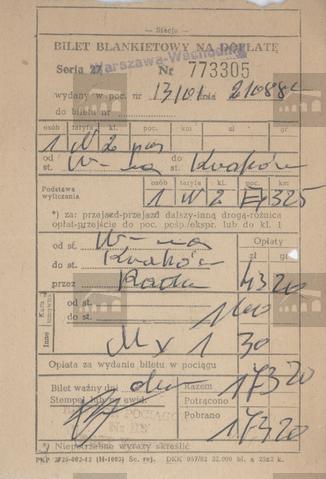 — Stacja —
BILET BLANKIETOWY NA DOPŁATĘ
Warszawa-Wschodnia
Seria 27 Nr 773305
wydany w poc. nr 13101 dnia 210884
do biletu nr
osób taryfa kl. poc. km zł gr
1 N 2 pos
od st. W-wa do st. Kraków
Podstawa wyliczenia osób taryfa kl. poc. km
1 W 2 325
*) za: przejazd-przejazd dalszy-inną drogą-różnica
opłat-przejście do poc. pośp./ekspr. lub do kl. 1
od st. W-wa Opłaty
do st. Kraków zł gr
przez Radom 43 20
Kara taryfowa od st.
do st. 100
Inne 1 30
Opłata za wydanie biletu w pociągu
Bilet ważny dni Razem 173 20
Stempel lub nr ewid. Potrącono
Pobrano 173 20
*) Niepotrzebne wyrazy skreślić
PKP (H-1003) Sc. rej. DKK 967/82 32.000 bl. a 25x2 k.